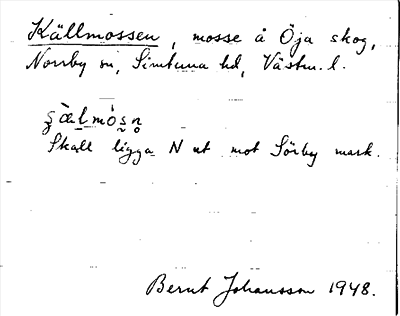 Källmossen, mosse å Öja skog,
Norrby sn, Simtuna hd, Västm. l.
ʂæ̀lmósn̥
Skall ligga N ut mot Sörby mark.
Bernt Johansson 1948.